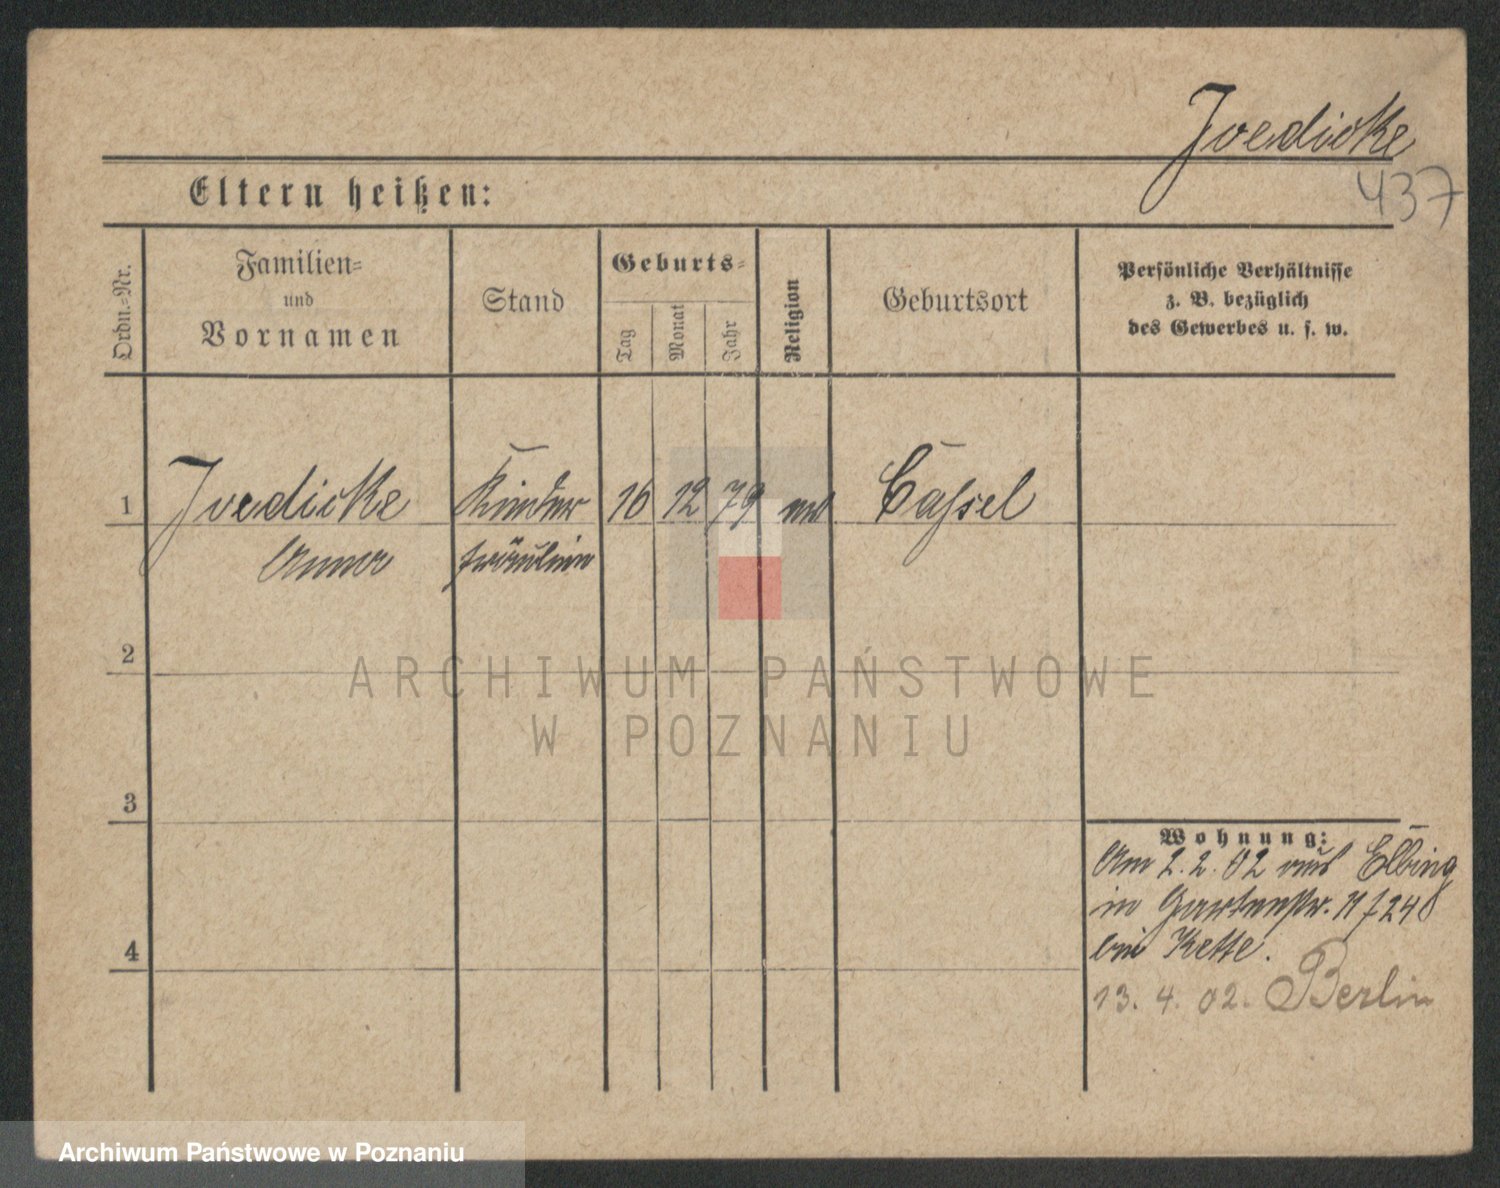 Joedicke
437
Eltern heißen:
Ordn.-Nr.
Familien-
und
Vornamen
Stand
Geburts-
Tag
Monat
Jahr
Religion
Geburtsort
Persönliche Verhältnisse
z. B. bezüglich
des Gewerbes u. s. w.
1
Joedicke
Kinder
16
12
79
Cassel
Anna
fräulein
2
3
4
Wohnung:
Am 2.2.02 aus Elbing
in Gartenstr.
bei Kette.
13. 4. 02. Berlin
ARCHIWUM PAŃSTWOWE
W POZNANIU
Archiwum Państwowe w Poznaniu